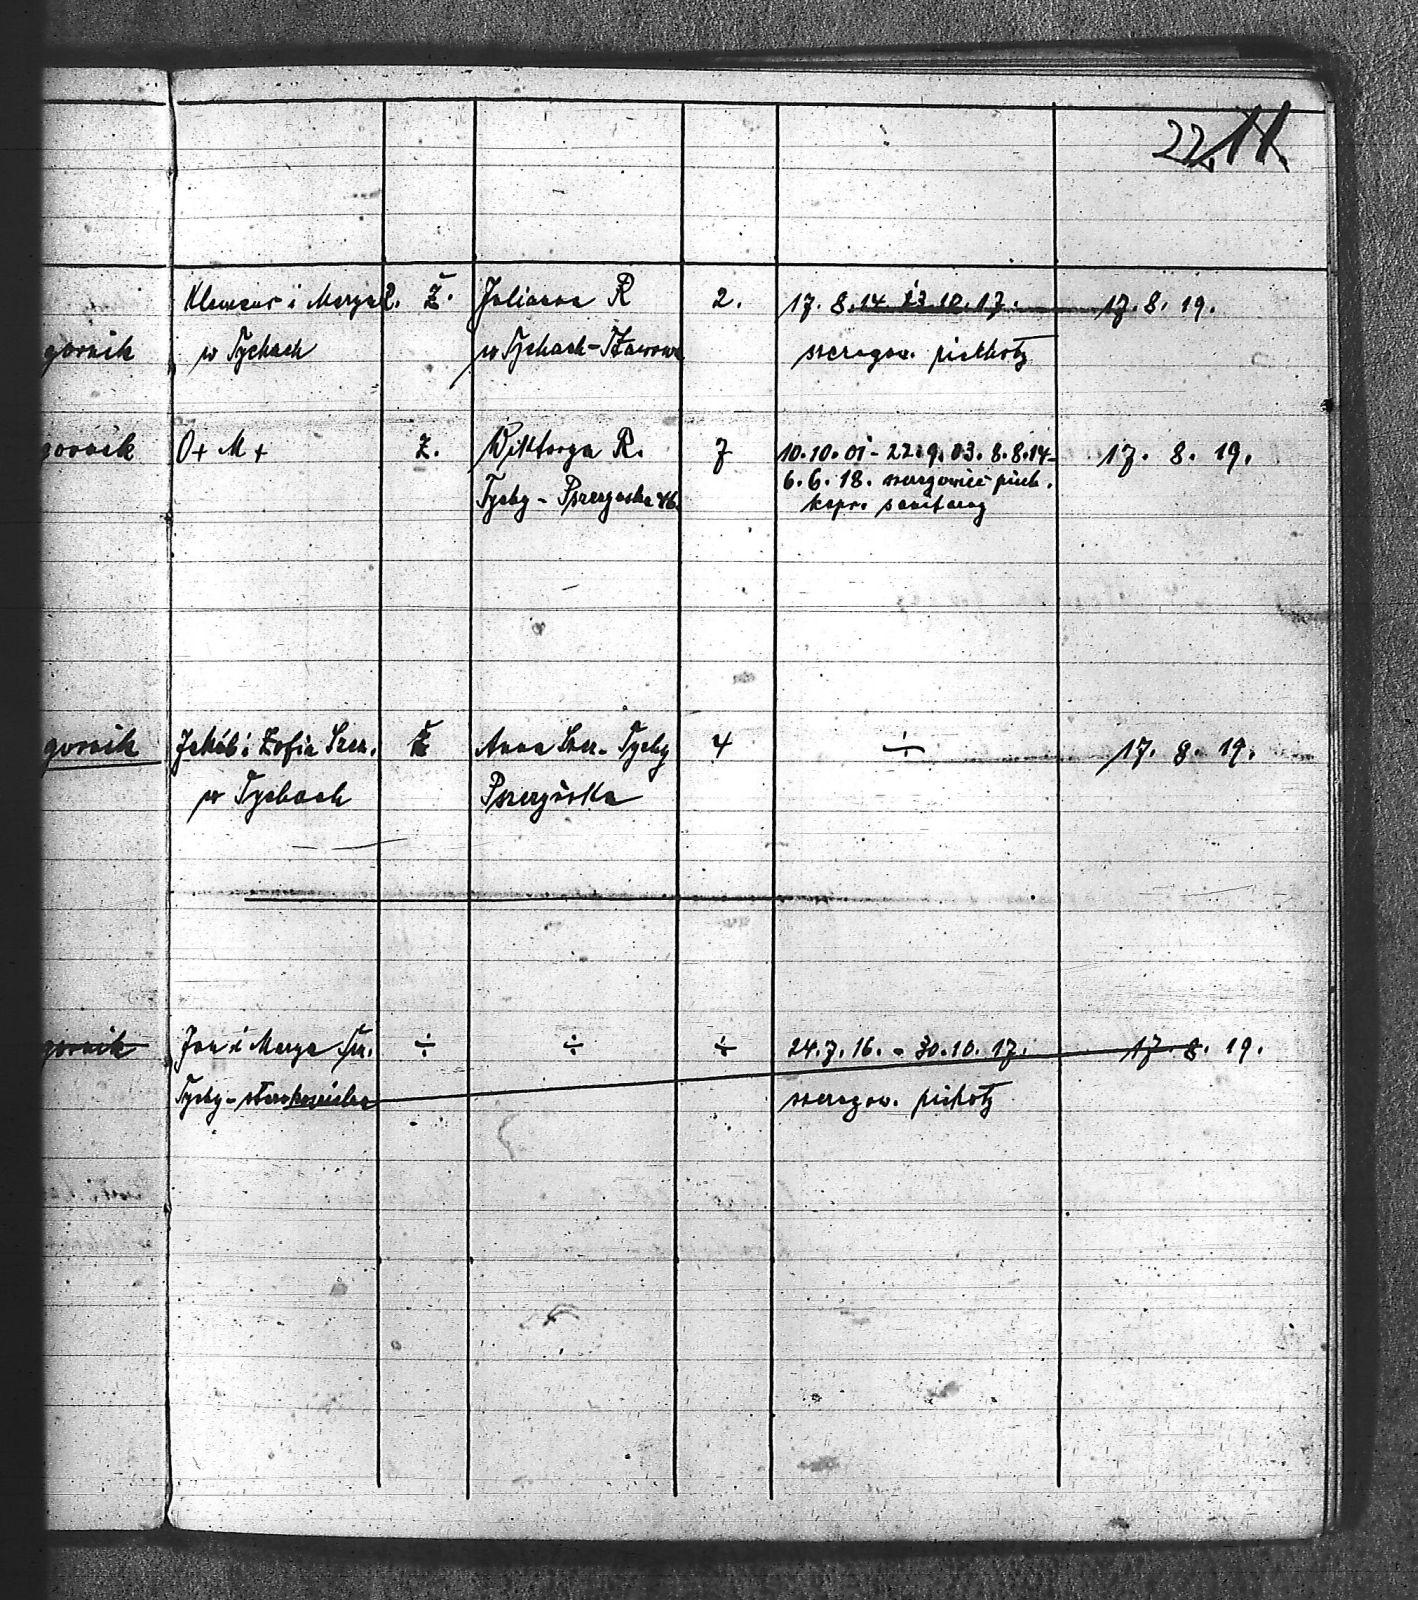 22.
górnik Klemens i Marya R. Ż. Julianna R 2. 17. 8. 14 23. 10. 17. 17. 8. 19.
w Tychach w Tychach- szeregow. piechoty
górnik O+ M+ Ż. Wiktorya R. 7 10. 10. 01 - 22. 9. 03. 8. 8. 14 - 17. 8. 19.
Tychy - Pszczyńska 46. 6. 6. 18. szeregowiec piech.
kapr. sanitarny
górnik Jakób i Zofia Szcz. Ż Anna Szcz. Tychy 4 ÷ 17. 8. 19.
w Tychach Pszczyńska
górnik Jan i Marya ÷ ÷ ÷ 24. 7. 16. - 30. 10. 17. 17. 8. 19.
Tychy - szeregow. piechoty